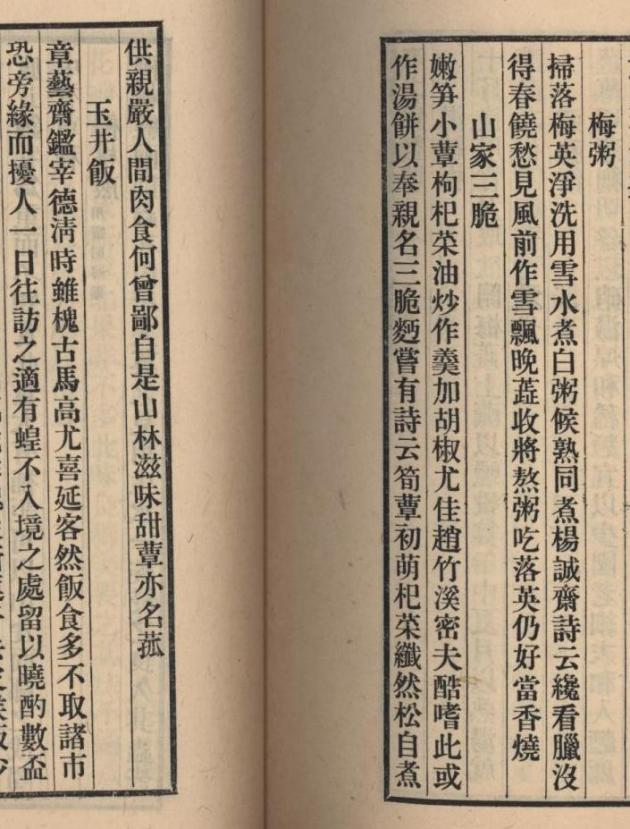 梅粥
掃落梅英淨洗用雪水煮白粥候熟同煮楊誠齋詩云纔看臘沒
得春饒愁見風前作雪飄晚蕋收將熬粥吃落英仍好當香燒
山家三脆
嫩笋小蕈枸杞菜油炒作羹加胡椒尤佳趙竹溪密夫酷嗜此或
作湯餅以奉親名三脆麪嘗有詩云筍蕈初萌杞菜纖然松自煮
供親嚴人間肉食何曾鄙自是山林滋味甜蕈亦名菰
玉井飯
章藝齋鑑宰德淸時雖槐古馬高尤喜延客然飯食多不取諸市
恐旁緣而擾人一日往訪之適有蝗不入境之處留以曉酌數盃